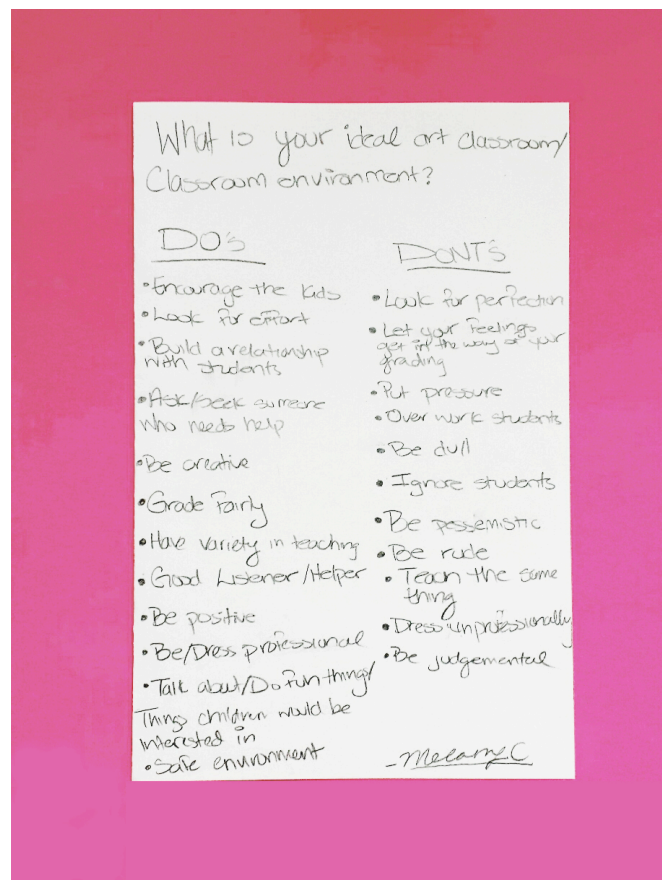 What is your ideal art classroom/
Classroom environment?
DO's
• Encourage the kids
• Look for effort
• Build a relationship
with students
• Ask/seek someone
who needs help
• Be creative
• Grade Fairly
• Have variety in teaching
• Good Listener/Helper
• Be positive
• Be/Dress professional
• Talk about/Do fun things/
Things children would be
interested in
• Safe environment
DONT's
• Look for perfection
• Let your feelings
get in the way of your
grading
• Put pressure
• Over work students
• Be dull
• Ignore students
• Be pessemistic
• Be rude
• Teach the same
thing
• Dress unprofessionally
• Be judgemental
- Melany C